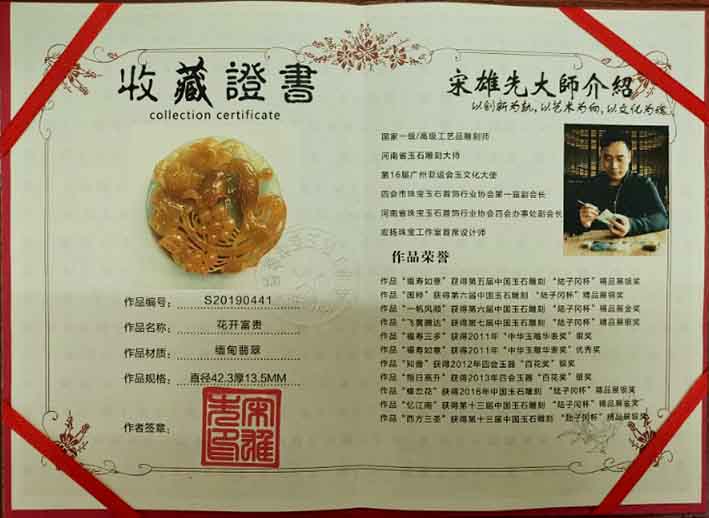 收藏證書
collection certificate
作品编号: S20190441
作品名称: 花开富贵
作品材质: 缅甸翡翠
作品规格: 直径42.3厚13.5MM
作者签章:
宋雄先印
宋雄先大師介紹
以创新为轨,以艺术为向,以文化为魂
国家一级/高级工艺品雕刻师
河南省玉石雕刻大师
第16届广州亚运会玉文化大使
四会市珠宝玉石首饰行业协会第一届副会长
河南省珠宝玉石首饰行业协会四会办事处副会长
宏扬珠宝工作室首席设计师
作品荣誉
作品“福寿如意”获得第五届中国玉石雕刻 “陆子冈杯”精品展银奖
作品“国粹”获得第六届中国玉石雕刻 “陆子冈杯”精品展铜奖
作品“一帆风顺”获得第六届中国玉石雕刻 “陆子冈杯”精品展金奖
作品“飞黄腾达”获得第七届中国玉石雕刻 “陆子冈杯”精品展银奖
作品“福寿三多”获得2011年“中华玉雕华表奖”银奖
作品“福寿如意”获得2011年“中华玉雕华表奖”优秀奖
作品“知音”获得2012年四会玉器“百花奖”铜奖
作品“指日高升”获得2013年四会玉器“百花奖”银奖
作品“蝶恋花”获得2016年中国玉石雕刻 “陆子冈杯”精品展银奖
作品“忆江南”获得第十三届中国玉石雕刻 “陆子冈杯”精品展金奖
作品“西方三圣”获得第十三届中国玉石雕刻 “陆子冈杯”精品展银奖